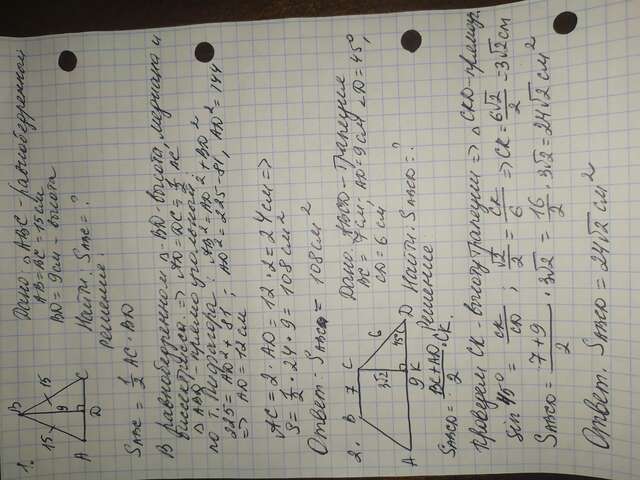 1.
B
15
15
9
A
D
C
Дано: △ABC - равнобедренный
AB = BC = 15 см
BD = 9 см - высота
Найти: Sавс = ?
Решение:
Sавс = 1/2 AC · BD
В равнобедренном △ BD высота, медиана и
биссектриса. => AD = DC = 1/2 AC.
△ ABD - прямоугольный.
по т. Пифагора: AB² = AD² + BD²
225 = AD² + 81; AD² = 225 - 81, AD² = 144
=> AD = 12 см
AC = 2 · AD = 12 · 2 = 24 см =>
S = 1/2 · 24 · 9 = 108 см²
Ответ: = 108 см²
2.
B
7
C
3√2
6
45°
A
9
K
D
Дано: ABCD - трапеция
BC = 7 см; AD = 9 см
CD = 6 см, ∠D = 45°,
Найти: SABCD = ?
Решение
SABCD = (BC + AD)/2 · CK.
Проведем CK - высоту трапеции => △ CKD - прямоуг.
Sin 45° = CK/CD; √2/2 = CK/6 => CK = 6√2/2 = 3√2 см
SABCD = (7 + 9)/2 · 3√2 = 16/2 · 3√2 = 24√2 см²
Ответ. SABCD = 24√2 см²